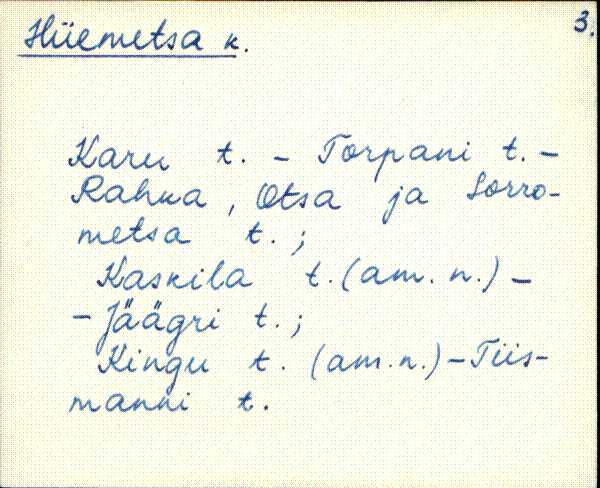 3.
Hüemetsa k.
Karu t. - Torpani t. -
Rahka, Otsa ja Sorro-
metsa t.;
Kaskila t. (am. n.) -
- Jäägri t.;
Kingu t. (am. n.) - Tiis-
manni t.